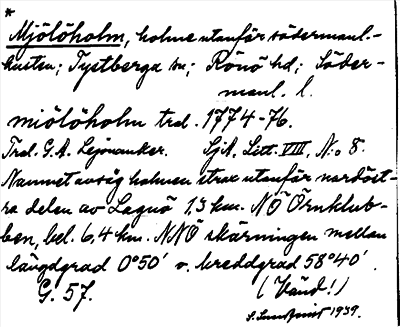 *
Mjölöholm, holme utanför södermanl.-
kusten; Tystberga sn; Rönö hd; Söder-
manl. l.
miölöholm trd. 1774-76.
Trd. G. A. Lejonanker. SjK, Litt. VIII, N:o 8.
Namnet avsåg holmen strax utanför nordöst-
ra delen av Lagnö 1,3 km. NÖ Örnklub-
ben, bel. 6,4 km. NNÖ skärningen mellan
längdgrad 0°50' o. breddgrad 58°40'.
G. 57. (Vänd!)
1939.